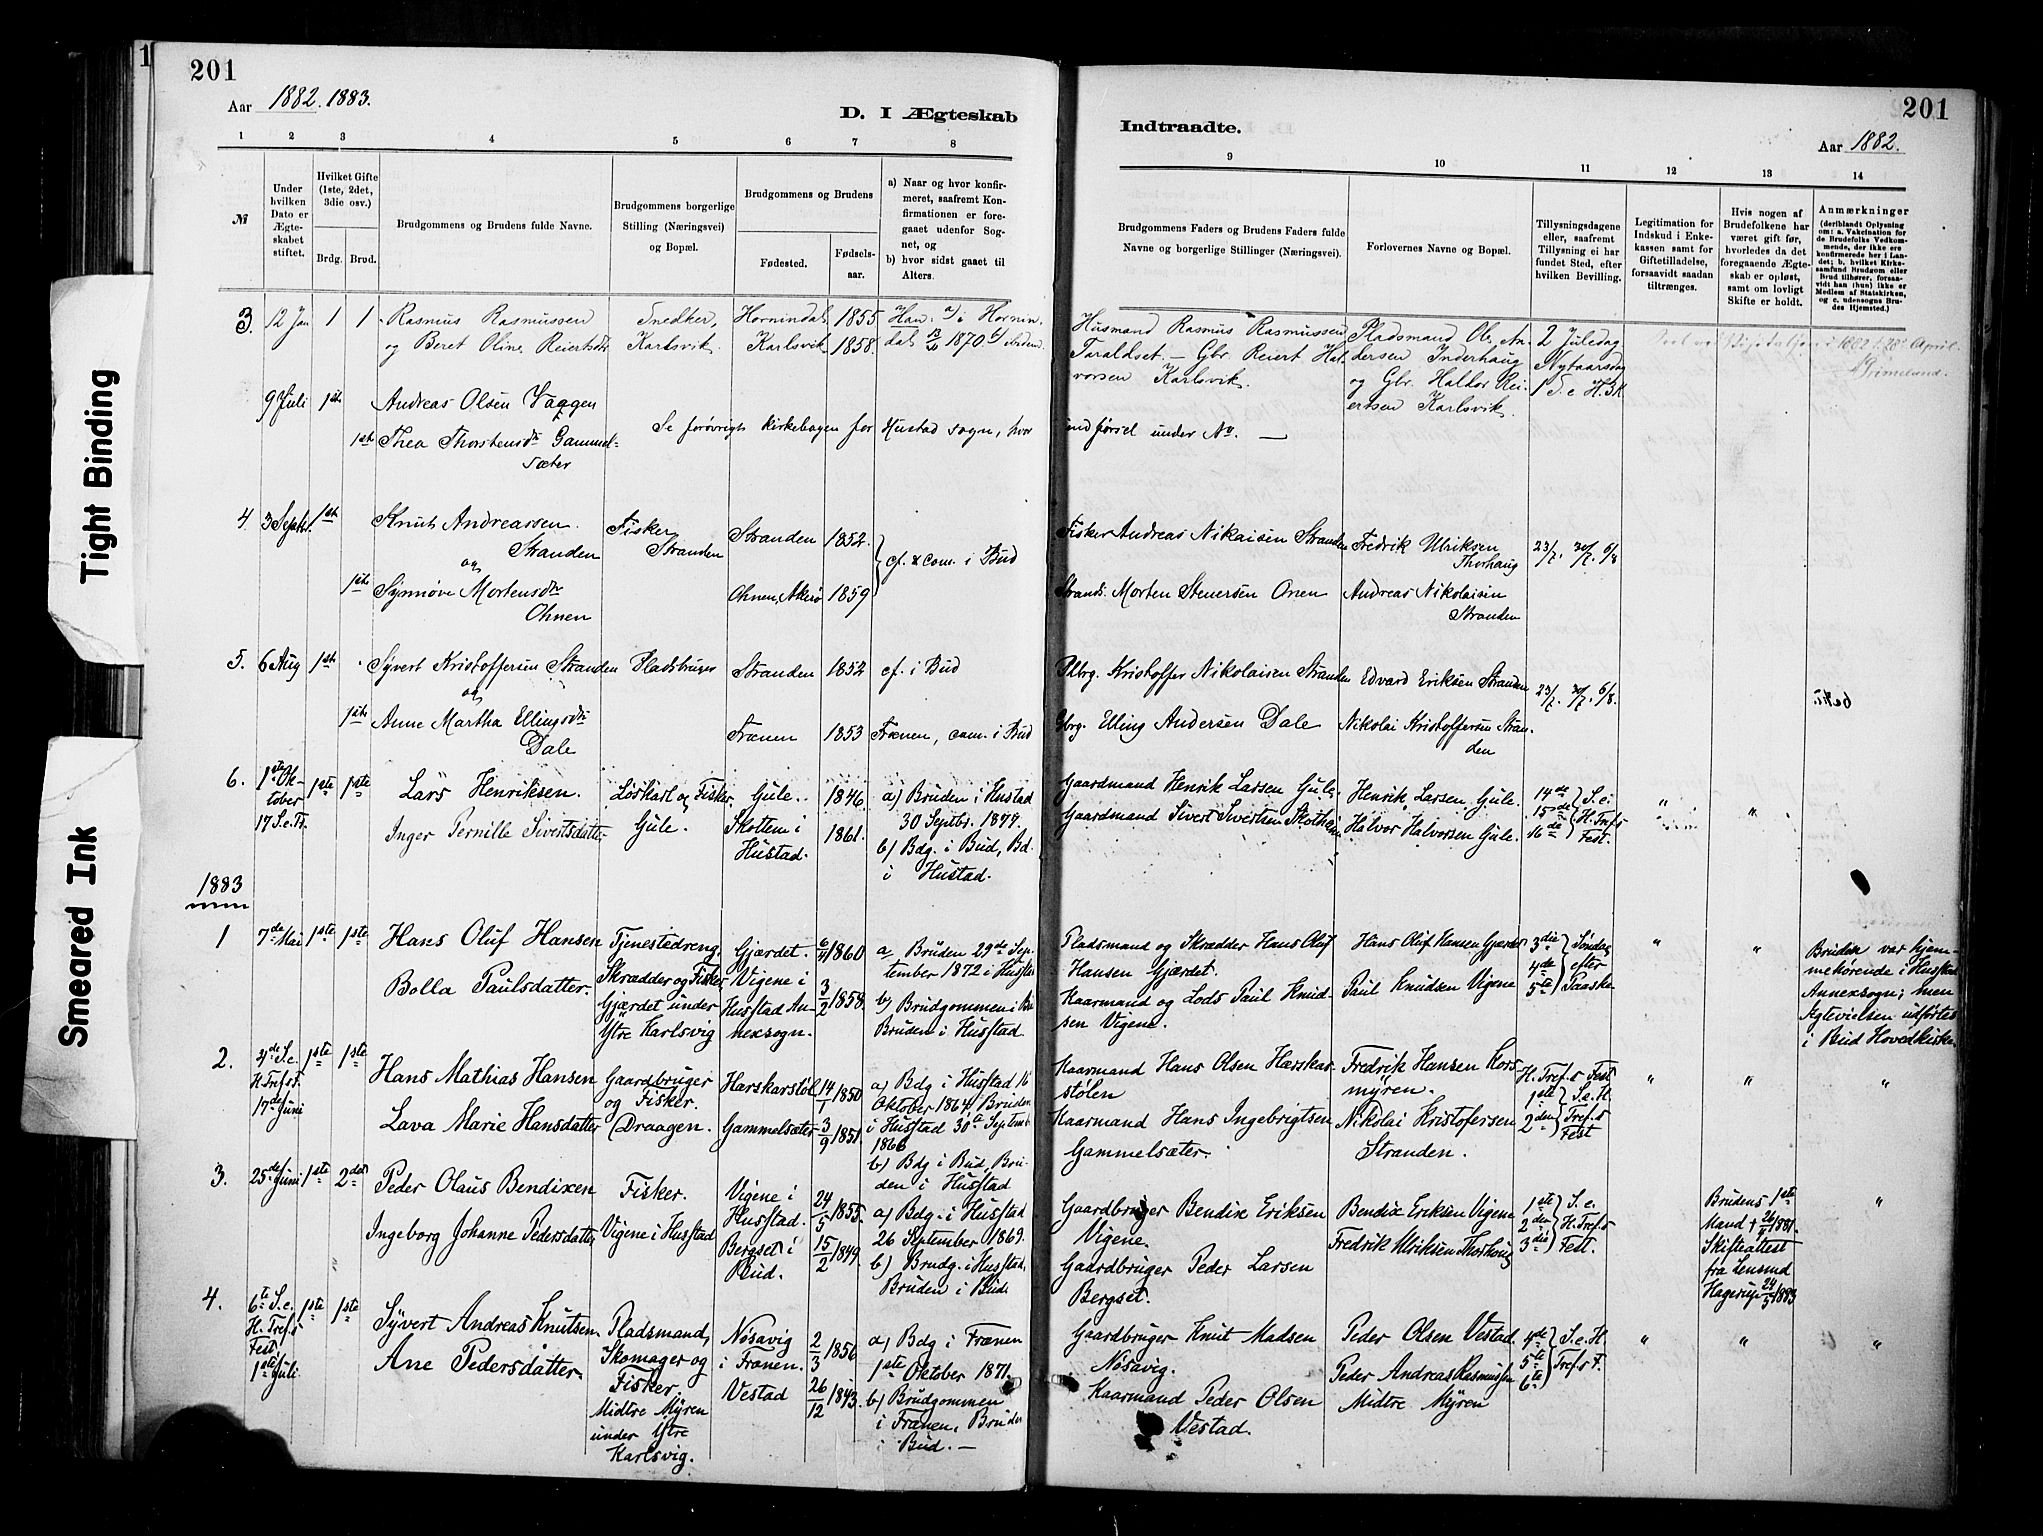 Tight Binding
Smeared Ink
201
Aar 1882. 1883.
D. I Ægteskab
1 2 3 4 5 6 7 8
№
Under hvilken Dato er Ægteskabet stiftet.
Hvilket Gifte (1ste, 2det, 3die osv.)
Brdg. Brud.
Brudgommens og Brudens fulde Navne.
Brudgommens borgerlige Stilling (Næringsvei) og Bopæl.
Brudgommens og Brudens
Fødested.
Fødsels-aar.
a) Naar og hvor konfirmeret, saafremt Konfirmationen er foregaaet udenfor Sognet, og
b) hvor sidst gaaet til Alters.
3 12 Jan 1 1 Rasmus Rasmussen Snedker, Hornindal 1855 Han: a) i Hornin-
og Beret Oline Reiertsdtr Karlsvik. Karlsvik 1858. dal 1870.
9 Juli 1ste Andreas Olsen Vaggen
1ste Thea Thorstensdtr Gammel- Se forøvrigt kirkebogen for Hustad sogn, hvor
sæter
4. 3 Septbr. 1ste Knut Andreassen Fisker
Stranden Stranden Stranden 1852.
og cf. & com. i Bud
1ste Synnøve Mortensdtr Ohnen, Akerø 1859
Ohnen
5. 6 Aug 1ste Syvert Kristoffersen Stranden Pladsbruger Stranden 1852 cf. i Bud
og
1ste Anne Martha Ellingsdtr Frænen 1853 Frænen, com. i Bud
Dale
6. 1ste Ok- 1ste 1ste Lars Henriksen. Løskarl og Fisker, Gule. 1846. a) Bruden i Hustad
tober 30 Septbr. 1877.
17 S.e.Tr. Inger Pernille Sivertsdatter Gule. Skottem i 1861. b) Bdg. i Bud, Bd.
Hustad. i Hustad.
1883
1 7de Mai 1ste 1ste Hans Oluf Hansen Tjenestedreng, Gjærdet. 1860 a Bruden 29de Sep-
Skrædder og Fisker, Vigene i tember 1872 i Hustad
Bolla Paulsdatter. Gjærdet under Hustad An- 3/2 1858. b) Brudgommen i Bud
Ytre Karlsvig nexsogn. Bruden i Hustad.
2. 4de S.e. 1ste 1ste Hans Mathias Hansen Gaardbruger Harskarstøl 14/1 1850 a) Bdg i Hustad 16
H.Tref.s F. og Fisker. Oktober 1864. Bruden
17de Juni Lava Marie Hansdatter (Draagen. Gammelsæter 3/9 1851. i Hustad 30 Septemb.
1866
b) Bdg i Bud, Bru-
den i Hustad
3. 25de Juni 1ste 2det Peder Olaus Bendixen Fisker. Vigene i 24/5 1855. a) Bdg. i Hustad
Hustad. 26 September 1869.
Ingeborg Johanne Pedersdatter Vigene i Hustad Bergset i 15/2 1849. b) Brudg. i Hustad,
Bud. Bruden i Bud.
4. 6te S.e. 1ste 1ste Syvert Andreas Knutsen Pladsmand, Nøsavig 2/3 1856 a) Bdg i Frænen
H. Tref.s Skomager og i Frænen. 1ste Oktober 1871.
Fest Ane Pedersdatter. Fisker Vestad 26/12 1843. b) Brudgommen
1ste Juli. Midtre Myren i Frænen, Bruden
under Ytre i Bud. —
Karlsvig.
Indtraadte.
201
Aar 1882.
9 10 11 12 13 14
Brudgommens Faders og Brudens Faders fulde Navne og borgerlige Stillinger (Næringsvei).
Forlovernes Navne og Bopæl.
Tillysningsdagene eller, saafremt Tillysning ei har fundet Sted, efter hvilken Bevilling.
Legitimation for Indskud i Enkekassen samt for Giftetilladelse, forsaavidt saadan tiltrænges.
Hvis nogen af Brudefolkene har været gift før, hvorledes da det foregaaende Ægteskab er opløst, samt om lovligt Skifte er holdt.
Anmærkninger
(deriblandt Oplysning om: a. Vaccination for de Brudefolks Vedkommende, der ikke ere konfirmerede her i Landet; b. hvilket Kirkesamfund Brudgom eller Brud tilhører, forsaavidt han (hun) ikke er Medlem af Statskirken, og c. udensogns Brudes Hjemsted.)
Husmand Rasmus Rasmussen Pladsmand Ole An- 2 Juledag
Taraldset. — Gbr. Reiert Hal- dersen Inderhaug Nytaarsdag
vorsen Karlsvik. og Gbr. Haldor Rei- 1 S. e. H. 3 K
ertsen Karlsvik. April
Grimeland.
indførsel under No. —
Fisker Andreas Nikolaisen Stranden Fredrik Ulriksen 23/7. 30/7. 6/8
Thorhaug
Strands. Morten Stenersen Onen Andreas Nikolaisen
Stranden
Pldbrg. Kristoffer Nikolaisen Stranden Edvard Eriksen Stranden 23/7. 30/7. 6/8.
Gbrg. Elling Andersen Dale Nikolai Kristoffersen Stran-
den
Gaardmand Henrik Larsen Gule. Henrik Larsen Gule. 14de 15de 16de S. e. H. Tref.s Fest. " "
Gaardmand Sivert Sivertsen Skothem Halvor Halvorsen Gule.
Pladsmand og Skrædder Hans Oluf Hans Oluf Hansen Gjærdet 3die 4de 5te Søndag efter Paaske " " Bruden var hjem-
Hansen Gjærdet. mehørende i Hustad
Kaarmand og Lods Paul Knud- Paul Knudsen Vigene Annexsogn; men
sen Vigene. Ægtevielsen udførtes
i Bud Hovedkirke.
Kaarmand Hans Olsen Harskar- Fredrik Hansen Kors- H. Tref.s Fest
stølen myren. 1ste S. e. H. " " "
Kaarmand Hans Ingebrigtsen Nikolai Kristofersen 2den Tref.s Fest
Gammelsæter. Stranden.
Gaardbruger Bendix Eriksen Bendix Eriksen Vigene 1ste 2den 3die S. e. H. Tref.s Fest. Brudens 1ste "
Vigene. Fredrik Ulriksen Thorhaug Mand † 1881.
Gaardbruger Peder Larsen Skifteattest
Bergset. fra Lensmd
Hagerup 24/5 1883
Gaardbruger Knut Madsen Peder Olsen Vestad. 4de 5te 6te S. e. H. Tref.s F. " " "
Nøsavig. Peder Andreas Rasmussen
Kaarmand Peder Olsen Midtre Myren
Vestad.